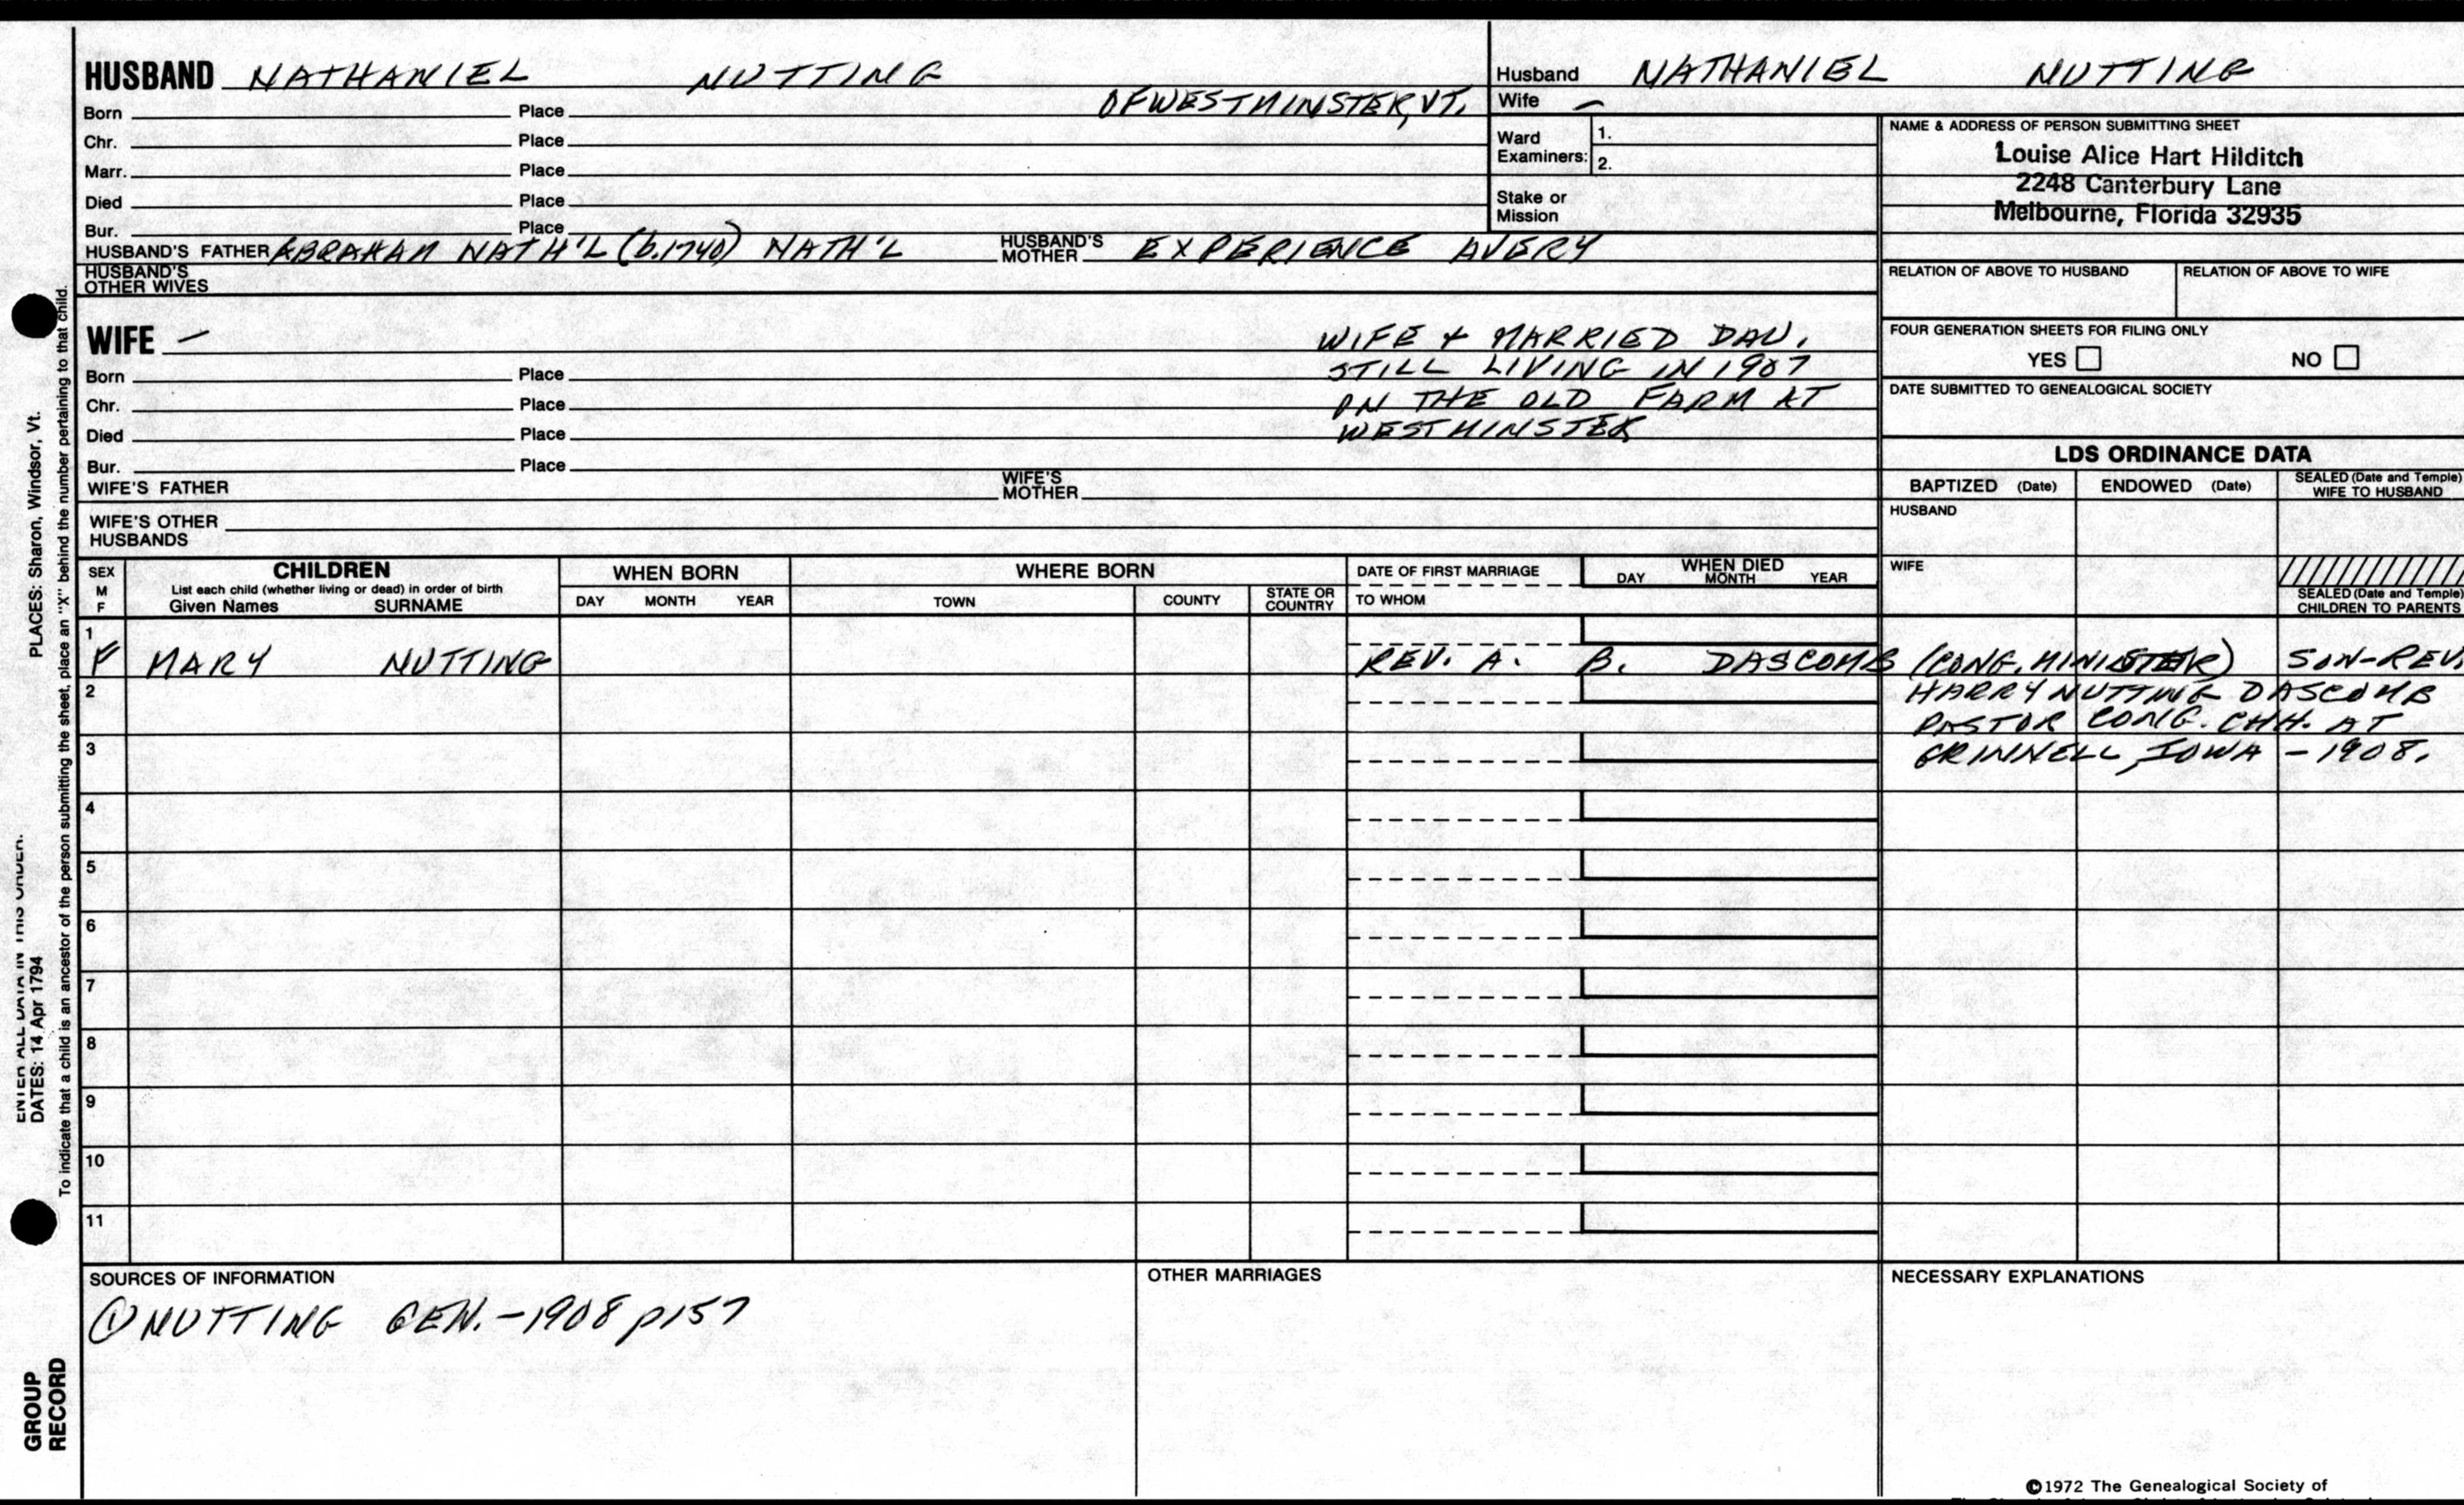 HUSBAND NATHANIEL NUTTING
OF WESTMINSTER, VT.
Born Place
Chr. Place
Marr. Place
Died Place
Bur. Place
HUSBAND'S FATHER ABRAHAM NATH'L (b.1740) NATH'L HUSBAND'S MOTHER EXPERIENCE AVERY
HUSBAND'S
OTHER WIVES
Husband NATHANIEL NUTTING
Wife —
Ward
Examiners: 1.
2.
Stake or
Mission
NAME & ADDRESS OF PERSON SUBMITTING SHEET
Louise Alice Hart Hilditch
2248 Canterbury Lane
Melbourne, Florida 32935
RELATION OF ABOVE TO HUSBAND RELATION OF ABOVE TO WIFE
FOUR GENERATION SHEETS FOR FILING ONLY
YES NO
DATE SUBMITTED TO GENEALOGICAL SOCIETY
WIFE —
WIFE + MARRIED DAU.
STILL LIVING IN 1907
ON THE OLD FARM AT
WESTMINSTER
Born Place
Chr. Place
Died Place
Bur. Place
WIFE'S FATHER WIFE'S MOTHER
WIFE'S OTHER
HUSBANDS
LDS ORDINANCE DATA
BAPTIZED (Date) ENDOWED (Date) SEALED (Date and Temple)
WIFE TO HUSBAND
HUSBAND
WIFE
SEALED (Date and Temple)
CHILDREN TO PARENTS
SEX
M
F
CHILDREN
List each child (whether living or dead) in order of birth
Given Names SURNAME
WHEN BORN
DAY MONTH YEAR
WHERE BORN
TOWN COUNTY STATE OR
COUNTRY
DATE OF FIRST MARRIAGE
TO WHOM
WHEN DIED
DAY MONTH YEAR
1
F MARY NUTTING REV. A. B. DASCOMB (CONG. MINISTER) SON-REV.
HARRY NUTTING DASCOMB
PASTOR CONG. CHH. AT
GRINNELL, IOWA - 1908.
2
3
4
5
6
7
8
9
10
11
SOURCES OF INFORMATION
① NUTTING GEN. - 1908 p157
OTHER MARRIAGES
NECESSARY EXPLANATIONS
©1972 The Genealogical Society of
ENTER ALL DATA IN THIS ORDER.
DATES: 14 Apr 1794 PLACES: Sharon, Windsor, Vt.
To indicate that a child is an ancestor of the person submitting the sheet, place an "X" behind the number pertaining to that child.
GROUP
RECORD